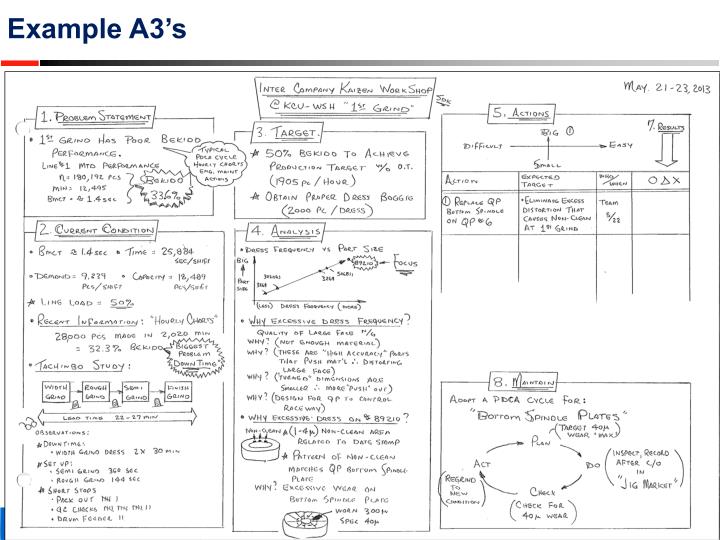 Example A3's
INTER COMPANY KAIZEN WORKSHOP
@ KCU-WSH "1ST GRIND"
MAY. 21-23, 2013
1. PROBLEM STATEMENT
• 1ST GRIND HAS POOR BEKIDO
PERFORMANCE.
LINE #1 MTD PERFORMANCE
N = 180,192 PCS
MIN = 12,495
BMCT = 1.4 SEC
BEKIDO
33.6%
TYPICAL
PDCA CYCLE
HOURLY CHARTS
ENG, MAINT
ACTIONS
2. CURRENT CONDITION
• BMCT 1.4 SEC • TIME = 25,884
SEC/SHIFT
• DEMAND = 9,239 • CAPACITY = 18,489
PCS/SHIFT PCS/SHIFT
* LINE LOAD = 50%
• RECENT INFORMATION: "HOURLY CHARTS"
28000 PCS MADE IN 2,020 MIN
= 32.3% BEKIDO
BIGGEST
PROBLEM
DOWN TIME
• TACHINBO STUDY:
WIDTH GRIND
ROUGH GRIND
SEMI GRIND
FINISH GRIND
LEAD TIME 22-27 MIN
OBSERVATIONS:
* DOWNTIME:
• WIDTH GRIND DRESS 2X 30 MIN
* SET UP:
• SEMI GRIND 360 SEC
• ROUGH GRIND 144 SEC
* SHORT STOPS
• PACK OUT
• QC CHECKS
• DRUM FEEDER II
3. TARGET.
* 50% BEKIDO TO ACHIEVE
PRODUCTION TARGET W/O O.T.
(1905 PC/HOUR)
* OBTAIN PROPER DRESS BOGGIG
(2000 PC/DRESS)
4. ANALYSIS
• DRESS FREQUENCY VS PORT SIZE
BIG
PART
SIZE
89210
FOCUS
(LESS) DRESS FREQUENCY (MORE)
• WHY EXCESSIVE DRESS FREQUENCY?
QUALITY OF LARGE FACE N/G
WHY? (NOT ENOUGH MATERIAL)
WHY? (THESE ARE "HIGH ACCURACY" PARTS
THAT PUSH MAT'L ∴ DISTORTING
LARGE FACE)
WHY? ("TURNED" DIMENSIONS ARE
SMALLER ∴ MORE "PUSH" OUT)
WHY? (DESIGN FOR QP TO CONTROL
RACEWAY)
• WHY EXCESSIVE DRESS ON # 89210?
NON-CLEAN (1-4μ) NON-CLEAN AREA
RELATED TO DATE STAMP
* PATTERN OF NON-CLEAN
MATCHES QP BOTTOM SPINDLE
PLATE
WHY? EXCESSIVE WEAR ON
BOTTOM SPINDLE PLATE
WORN 300μ
SPEC 40μ
5. ACTIONS
BIG ①
DIFFICULT EASY
SMALL
7. RESULTS
ACTION
EXPECTED TARGET
WHO/WHEN
O Δ X
① REPLACE QP
BOTTOM SPINDLE
ON QP #6
• ELIMINATE EXCESS
DISTORTION THAT
CAUSES NON-CLEAN
AT 1ST GRIND
TEAM
5/22
8. MAINTAIN
ADOPT A PDCA CYCLE FOR:
"BOTTOM SPINDLE PLATES"
(TARGET 40μ
WEAR "MAX")
PLAN
DO
(INSPECT, RECORD
AFTER C/O
IN
"JIG MARKET")
CHECK
(CHECK FOR
40μ WEAR)
ACT
(REGRIND
TO
NEW
CONDITION)